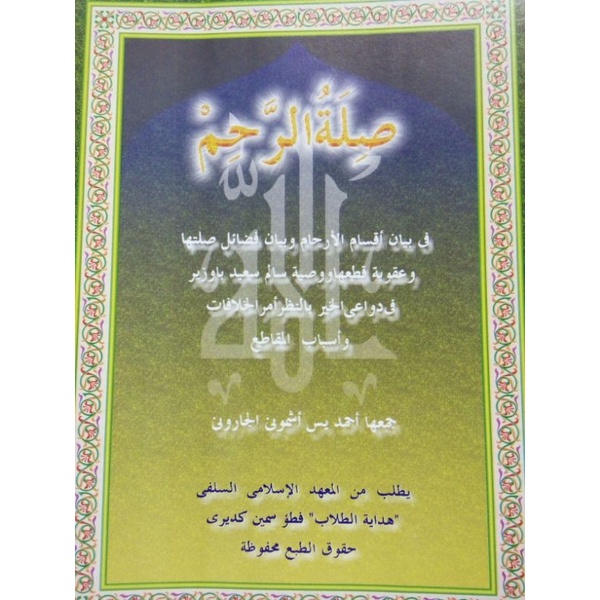 صِلَةُ الرَّحِمْ
فى بيان أقسام الأرحام وبيان فضائل صلتها
وعقوبة قطعها ووصية سالم سعيد باوزير
فى دواعى الخير بالنظر أمر الخلافات
وأسباب المقاطع
جمعها أحمد يس أشمونى الجارونى
يطلب من المعهد الإسلامى السلفى
"هداية الطلاب" فطؤ سمين كديرى
حقوق الطبع محفوظة